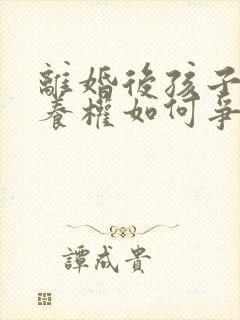 離婚後孩子
養權如何爭
譚成貴